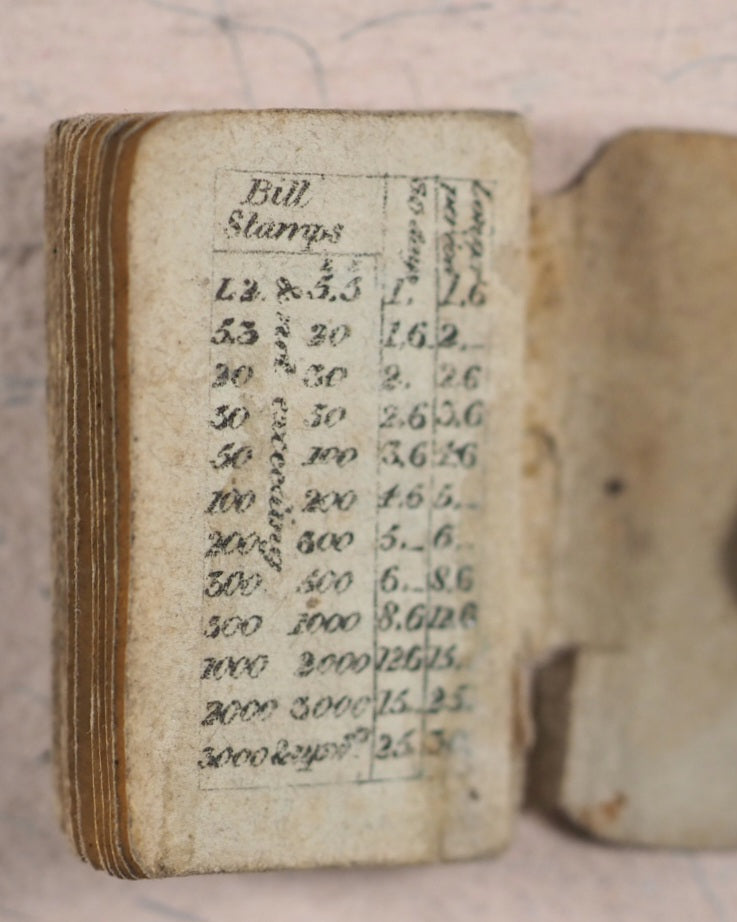 Bill
Stamps
60 days
Longer
period
& not exceeding
L. s.
L.2. & 5.5 1. 1.6
5.5 20 1.6 2._
20 30 2. 2.6
30 50 2.6 3.6
50 100 3.6 4.6
100 200 4.6 5._
200 300 5._ 6._
300 500 6._ 8.6
500 1000 8.6 12.6
1000 2000 12.6 15.
2000 3000 15._ 25.
3000 & upwds. 25. 30